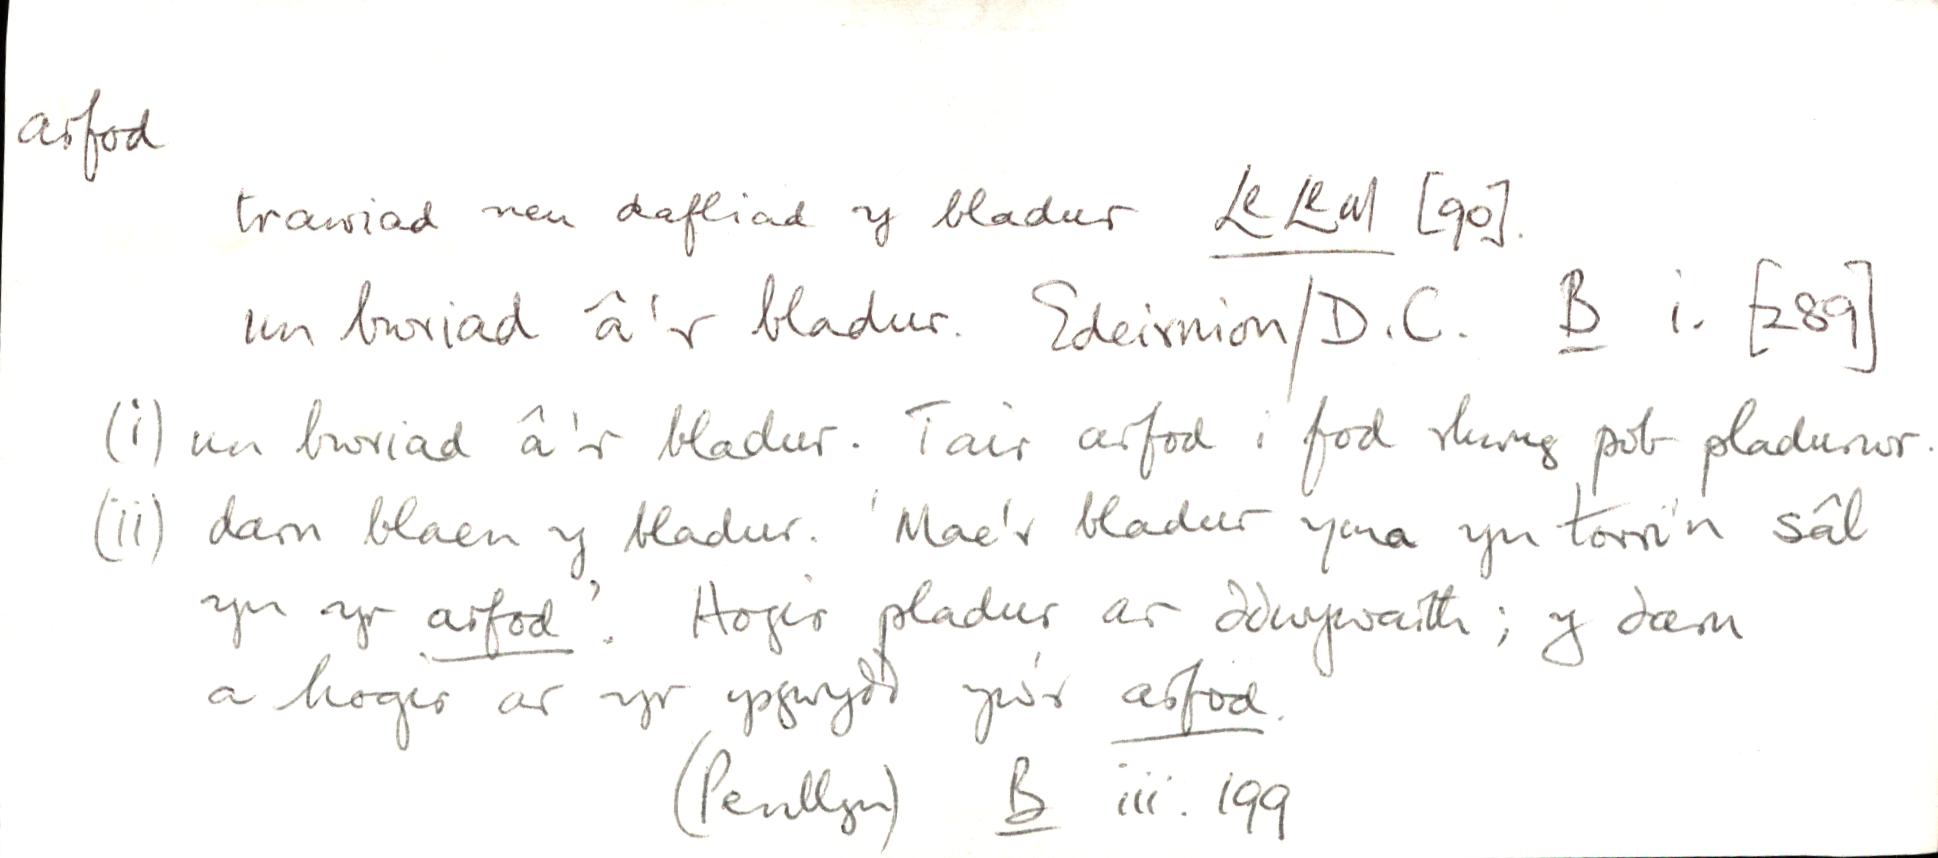 arfod
trawiad neu dafliad y bladur LlLlM [90].
un buriad â'r bladur. Edeirnion/D.C. B i. [289]
(i) un buriad â'r bladur. Tair arfod i fod rhwng pob pladurwr.
(ii) darn blaen y bladur. 'Mae'r bladur yma yn torri'n sâl
yn yr arfod'. Hogir pladur ar ddwywaith; y darn
a hogir ar yr ysgwydd yw'r arfod.
(Penllyn) B iii. 199